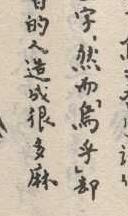 字，然而「烏乎」却
的人造成很多麻